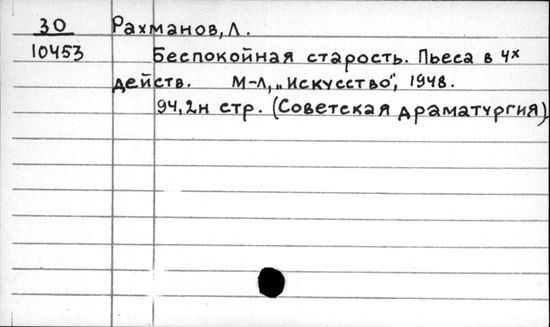 30 Рахманов, Л.
10453 Беспокойная старость. Пьеса в 4х
действ. М-Л, „Искусство", 1948.
94, 2н стр. (Советская драматургия)